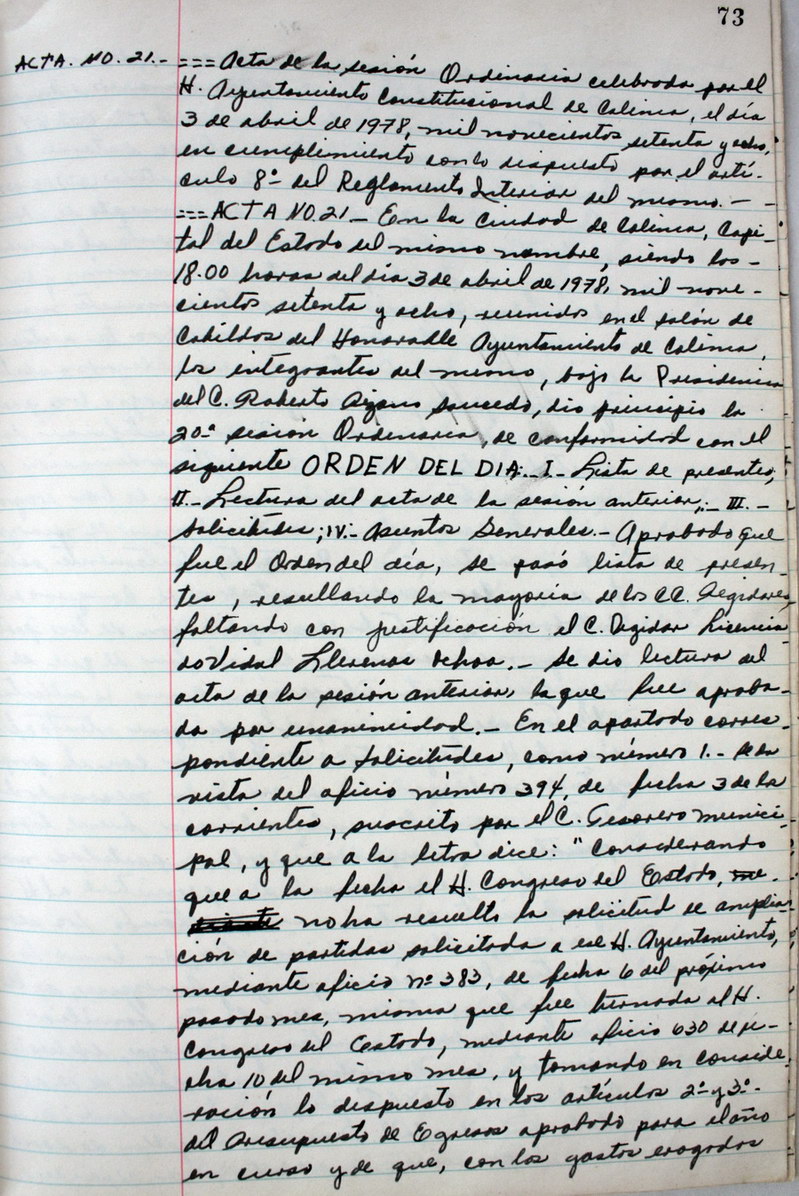 73
ACTA. NO. 21.- === Acta de la sesión Ordinaria celebrada por el
H. Ayuntamiento Constitucional de Colima, el día
3 de abril de 1978, mil novecientos setenta y ocho,
en cumplimiento con lo dispuesto por el artí-
culo 8º del Reglamento Interior del mismo. - -
=== ACTA NO. 21 - En la Ciudad de Colima, Capi-
tal del Estado del mismo nombre, siendo las -
18.00 horas del día 3 de abril de 1978, mil nove-
cientos setenta y ocho, reunidos en el salón de
Cabildos del Honorable Ayuntamiento de Colima,
los integrantes del mismo, bajo la Presidencia
del C. Roberto Saucedo, dio principio la
20ª sesión Ordinaria, de conformidad con el
siguiente ORDEN DEL DIA: I- Lista de presentes,
II.- Lectura del acta de la sesión anterior; - III. -
Solicitudes; IV.- Asuntos Generales.- Aprobado que
fue el Orden del día, se pasó lista de presen-
tes, resultando la mayoría de los CC. Regidores,
faltando con justificación el C. Regidor Licencia
do Vidal Llerenas Ochoa. - Se dio lectura del
acta de la sesión anterior, la que fue aproba-
da por unanimidad. - En el apartado corres-
pondiente a solicitudes, como número 1. - se da
vista del oficio número 394, de fecha 3 de los
corrientes, suscrito por el C. Tesorero Munici-
pal, y que a la letra dice: "Considerando
que a la fecha el H. Congreso del Estado,
no ha resuelto la solicitud de amplia-
ción de partidas solicitada a ese H. Ayuntamiento,
mediante oficio nº 383, de fecha 6 del próximo
pasado mes, misma que fue turnada al H.
Congreso del Estado, mediante oficio 630 de fe-
cha 10 del mismo mes, y tomando en conside
ración lo dispuesto en los artículos 2º y 3º -
del Presupuesto de Egresos aprobado para el año
en curso y de que, con los gastos erogados